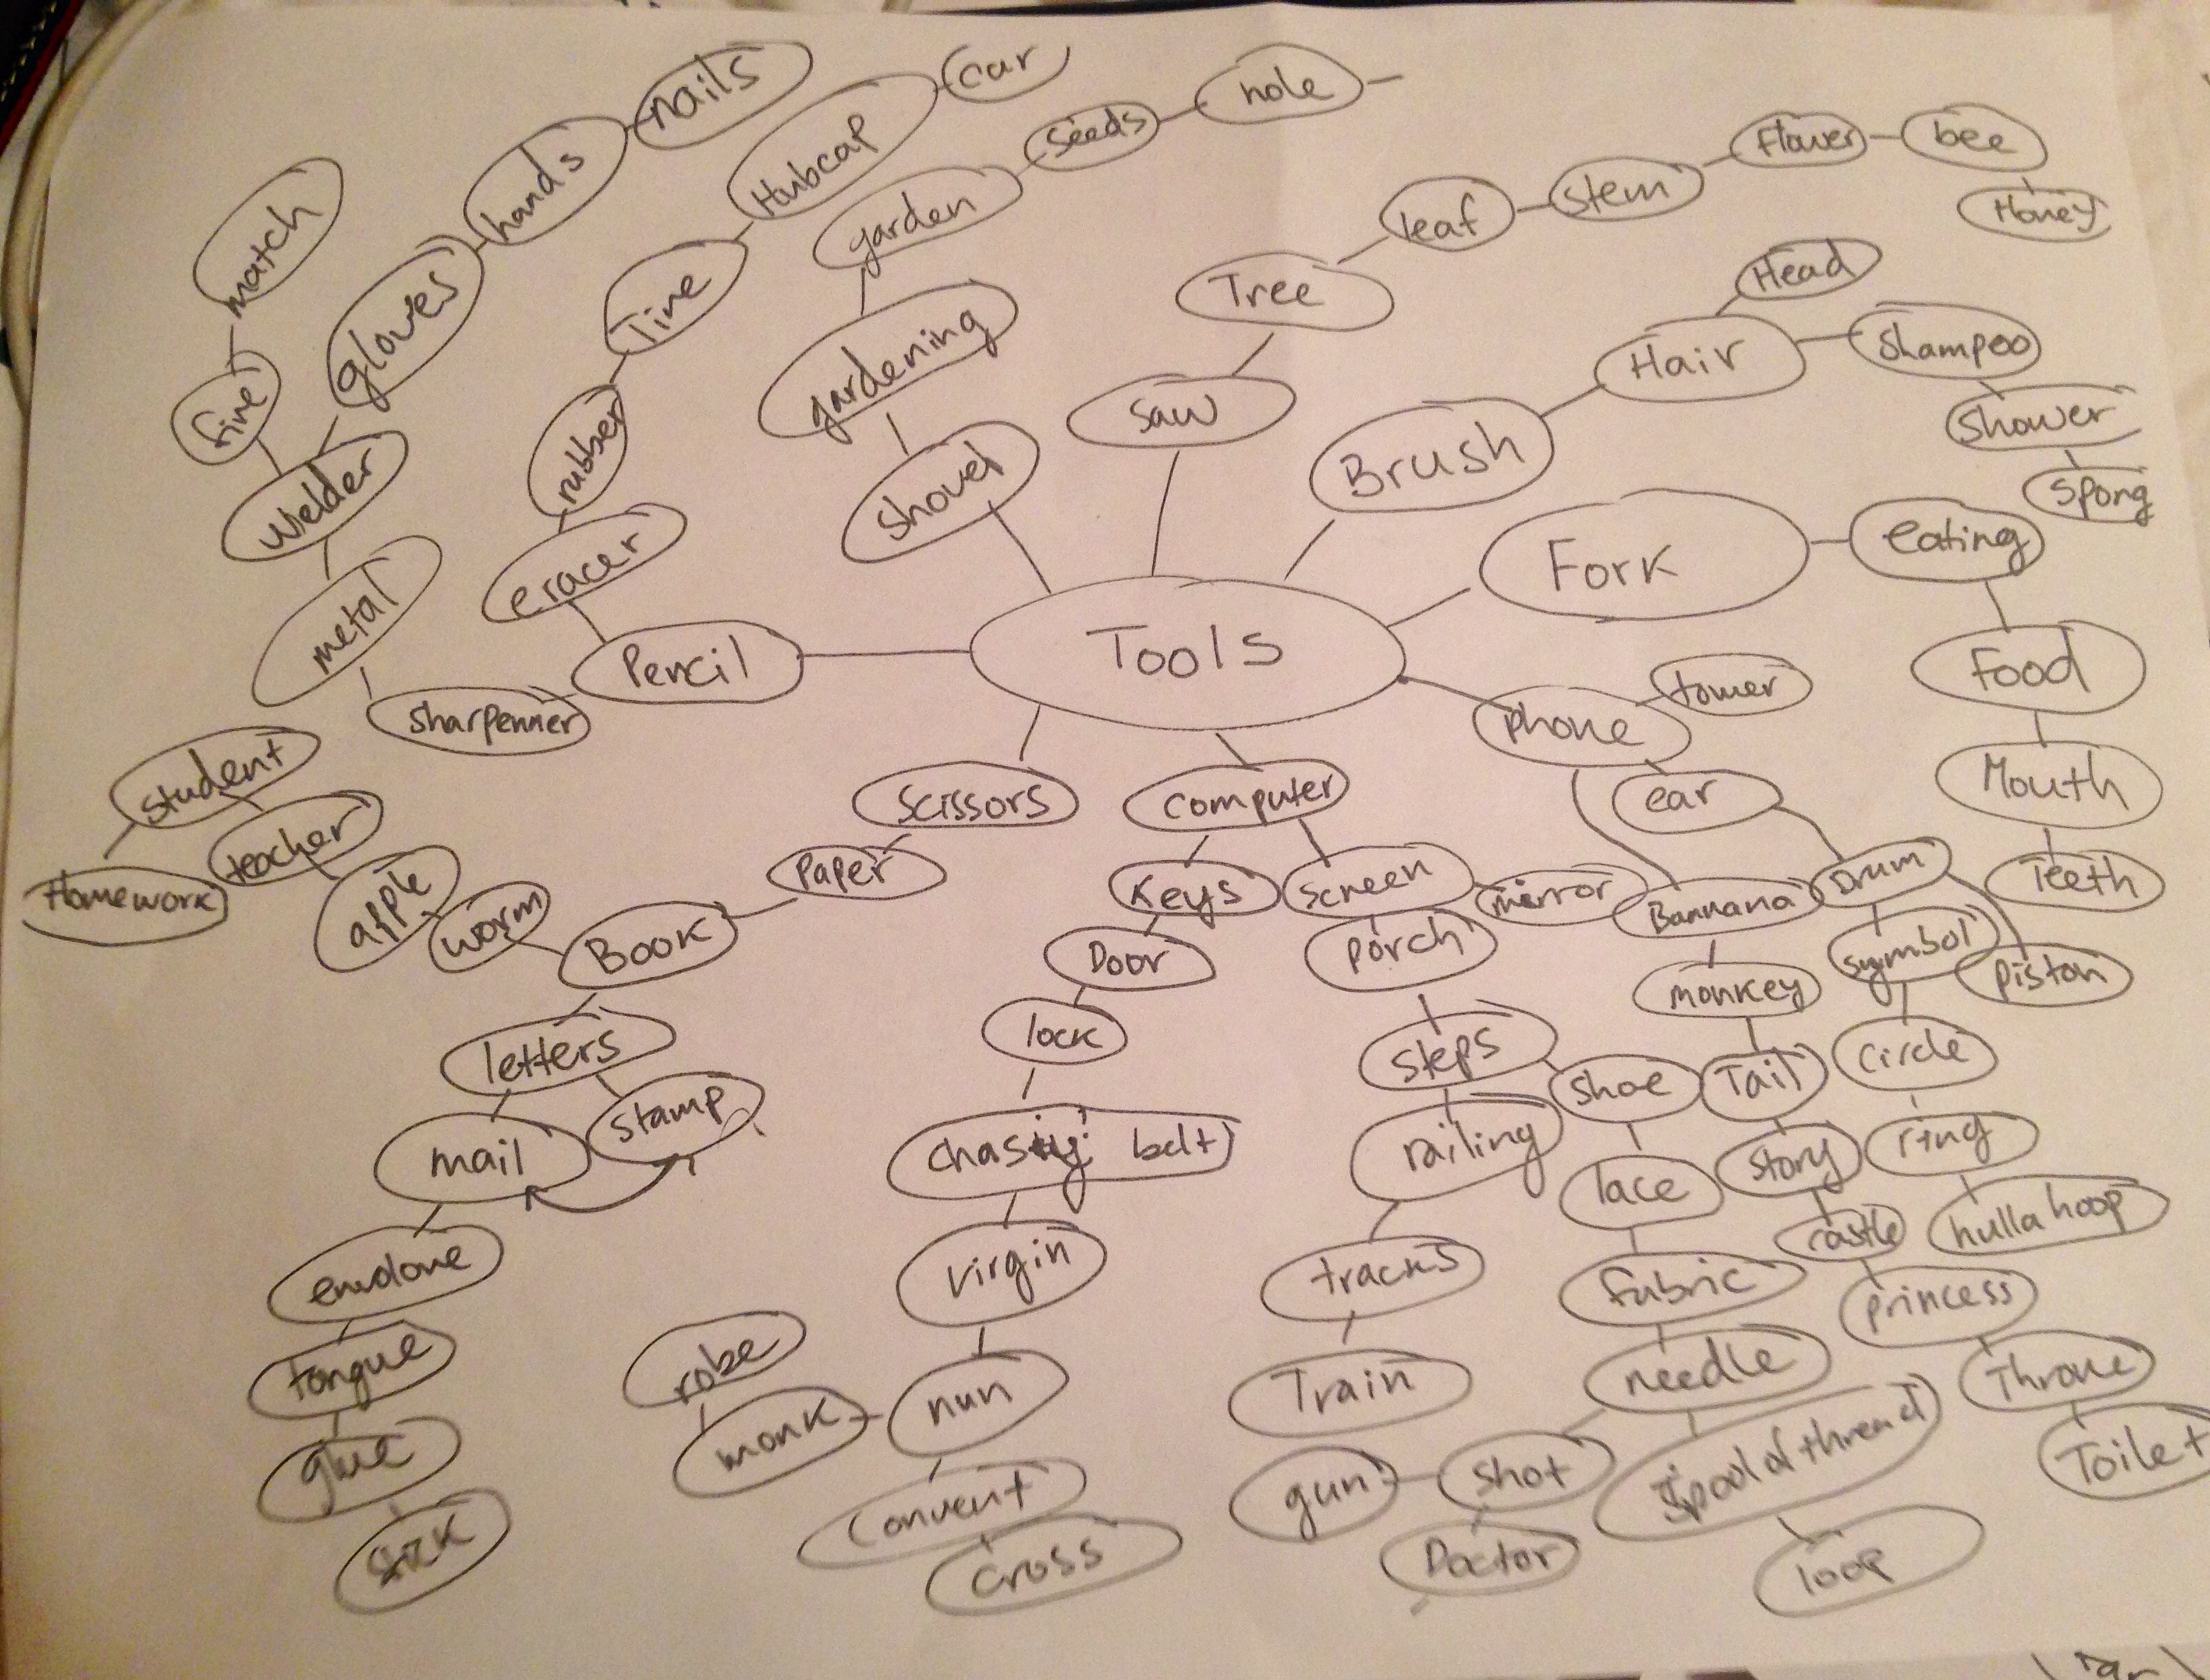 Tools
Pencil
eracer
rubber
Tire
Hubcap
car
sharpenner
metal
Welder
fire
match
gloves
hands
nails
Shovel
gardening
garden
seeds
hole
Saw
Tree
leaf
stem
Flower
bee
Honey
Brush
Hair
Head
Shampoo
Shower
Spong
Fork
eating
Food
Mouth
Teeth
phone
tower
ear
Drum
symbol
piston
circle
ring
hulla hoop
Bannana
monkey
Tail
story
castle
princess
Throne
Toilet
computer
Keys
Door
lock
chasty belt
virgin
nun
monk
robe
convent
cross
screen
mirror
porch
steps
railing
tracks
Train
shoe
lace
fabric
needle
shot
gun
Doctor
spool of thread
loop
scissors
Paper
Book
worm
apple
teacher
student
Homework
letters
stamp
mail
envlove
tongue
glue